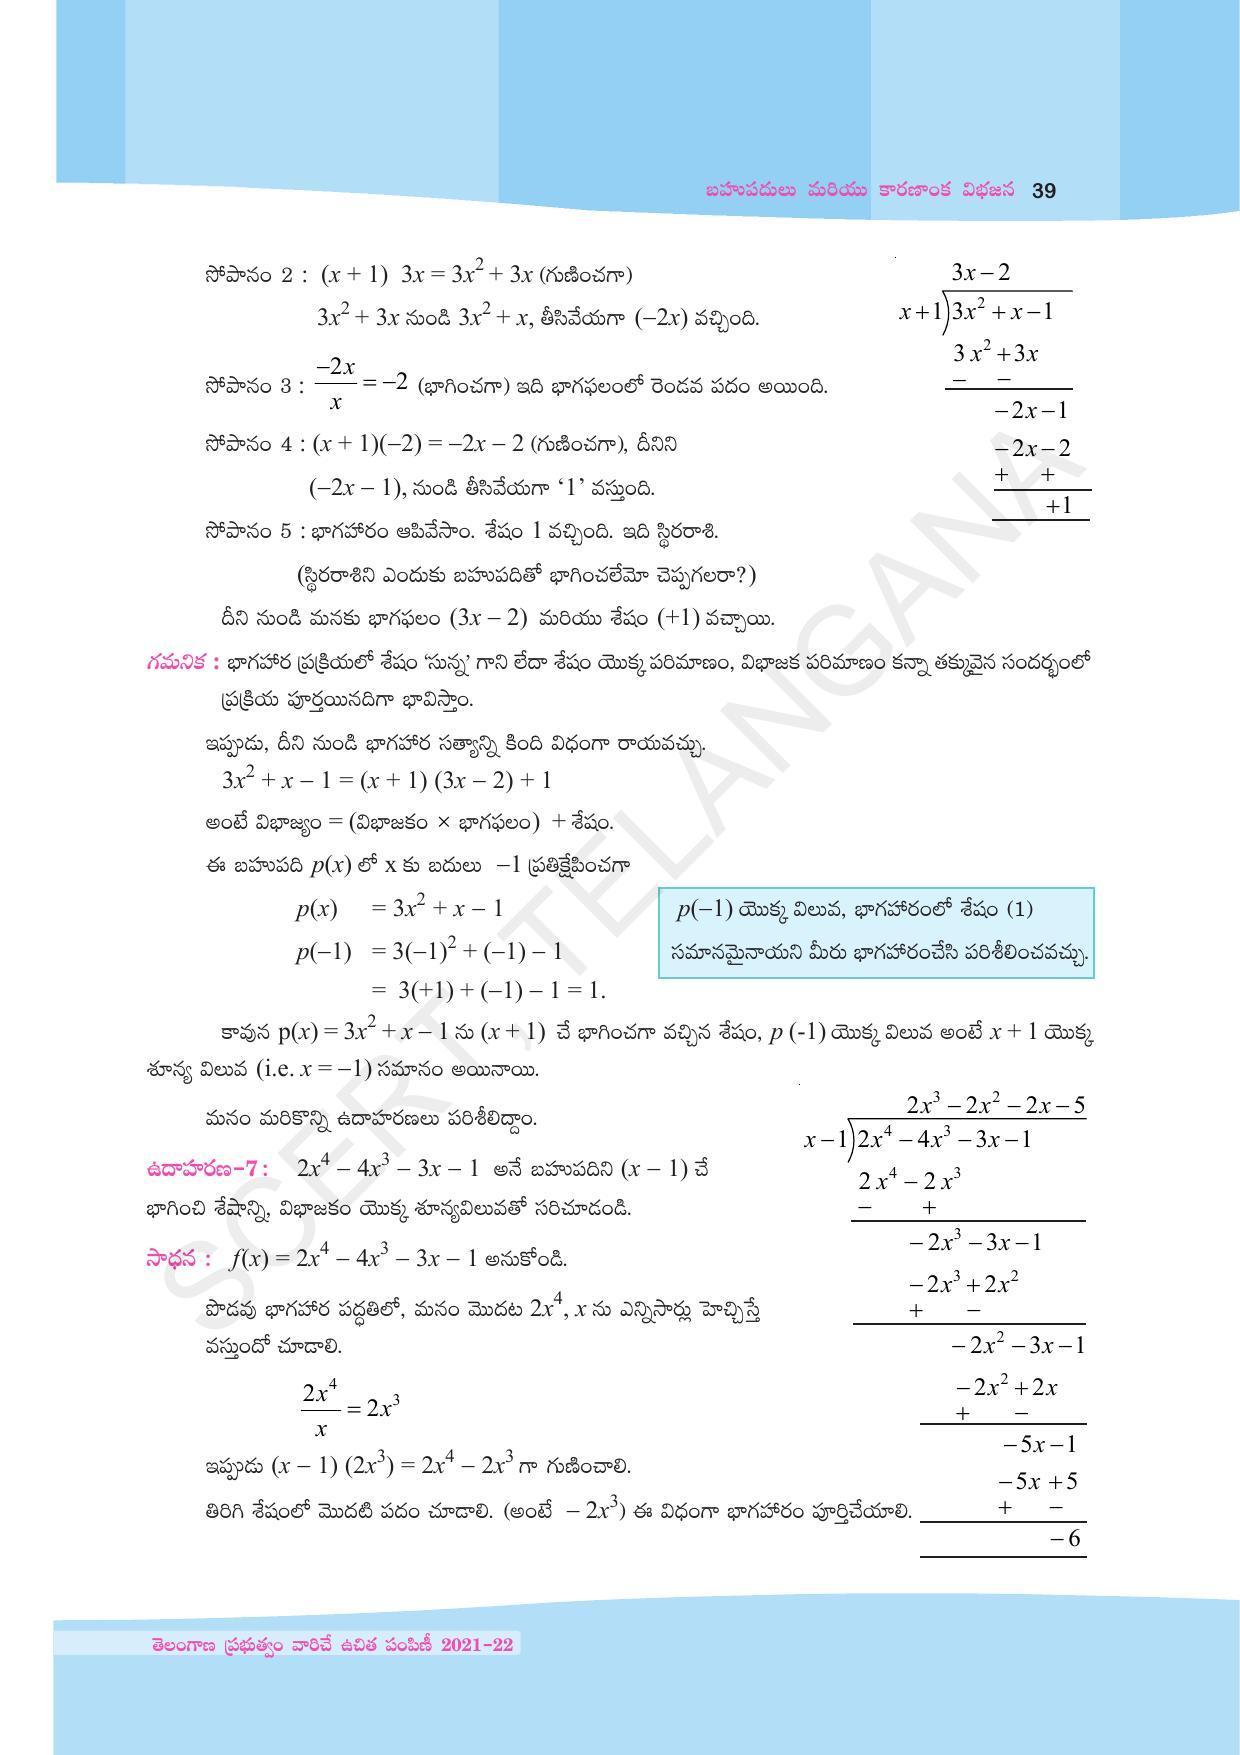 బహుపదులు మరియు కారణాంక విభజన 39
సోపానం 2 : (x + 1) 3x = 3x² + 3x (గుణించగా)
3x² + 3x నుండి 3x² + x, తీసివేయగా (–2x) వచ్చింది.
సోపానం 3 : –2x/x = –2 (భాగించగా) ఇది భాగఫలంలో రెండవ పదం అయింది.
సోపానం 4 : (x + 1)(–2) = –2x – 2 (గుణించగా), దీనిని
(–2x – 1), నుండి తీసివేయగా ‘1’ వస్తుంది.
సోపానం 5 : భాగహారం ఆపివేసాం. శేషం 1 వచ్చింది. ఇది స్థిరరాశి.
(స్థిరరాశిని ఎందుకు బహుపదితో భాగించలేమో చెప్పగలరా?)
దీని నుండి మనకు భాగఫలం (3x – 2) మరియు శేషం (+1) వచ్చాయి.
3x – 2
x + 1)3x² + x – 1
3x² + 3x
– –
– 2x – 1
– 2x – 2
+ +
+1
గమనిక : భాగహార ప్రక్రియలో శేషం ‘సున్న’ గాని లేదా శేషం యొక్క పరిమాణం, విభాజక పరిమాణం కన్నా తక్కువైన సందర్భంలో
ప్రక్రియ పూర్తయినదిగా భావిస్తాం.
ఇప్పుడు, దీని నుండి భాగహార సత్యాన్ని కింది విధంగా రాయవచ్చు.
3x² + x – 1 = (x + 1) (3x – 2) + 1
అంటే విభాజ్యం = (విభాజకం × భాగఫలం) + శేషం.
ఈ బహుపది p(x) లో x కు బదులు –1 ప్రతిక్షేపించగా
p(x) = 3x² + x – 1
p(–1) = 3(–1)² + (–1) – 1
= 3(+1) + (–1) – 1 = 1.
p(–1) యొక్క విలువ, భాగహారంలో శేషం (1)
సమానమైనాయని మీరు భాగహారంచేసి పరిశీలించవచ్చు.
కావున p(x) = 3x² + x – 1 ను (x + 1) చే భాగించగా వచ్చిన శేషం, p (-1) యొక్క విలువ అంటే x + 1 యొక్క
శూన్య విలువ (i.e. x = –1) సమానం అయినాయి.
మనం మరికొన్ని ఉదాహరణలు పరిశీలిద్దాం.
ఉదాహరణ-7 : 2x⁴ – 4x³ – 3x – 1 అనే బహుపదిని (x – 1) చే
భాగించి శేషాన్ని, విభాజకం యొక్క శూన్యవిలువతో సరిచూడండి.
సాధన : f(x) = 2x⁴ – 4x³ – 3x – 1 అనుకోండి.
పొడవు భాగహార పద్ధతిలో, మనం మొదట 2x⁴, x ను ఎన్నిసార్లు హెచ్చిస్తే
వస్తుందో చూడాలి.
2x⁴/x = 2x³
ఇప్పుడు (x – 1) (2x³) = 2x⁴ – 2x³ గా గుణించాలి.
తిరిగి శేషంలో మొదటి పదం చూడాలి. (అంటే – 2x³) ఈ విధంగా భాగహారం పూర్తిచేయాలి.
2x³ – 2x² – 2x – 5
x – 1)2x⁴ – 4x³ – 3x – 1
2x⁴ – 2x³
– +
– 2x³ – 3x – 1
– 2x³ + 2x²
+ –
– 2x² – 3x – 1
– 2x² + 2x
+ –
– 5x – 1
– 5x + 5
+ –
– 6
SCERT, TELANGANA
తెలంగాణ ప్రభుత్వం వారిచే ఉచిత పంపిణీ 2021-22